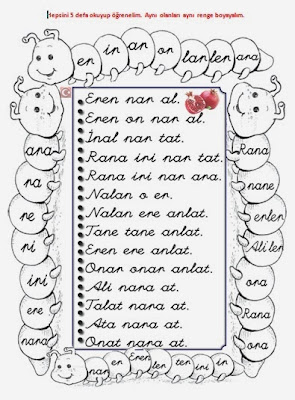 Hepsini 5 defa okuyup öğrenelim. Aynı olanları aynı renge boyayalım.
er in ar on lar ler ara
Eren nar al.
Eren on nar al.
İnal nar tat.
Rana iri nar tat.
Rana iri nar ara.
Nalan o er.
Nalan ere anlat.
Tane tane anlat.
Eren ere anlat.
Onar onar anlat.
Ali nara at.
Talat nara at.
Ata nara at.
Onat nara at.
ara
ra
re
ri
iri
ere
nara
Rana
nane
erler
Ali'ler
ora
Rana
ora
nar en Eren ler ter iri in